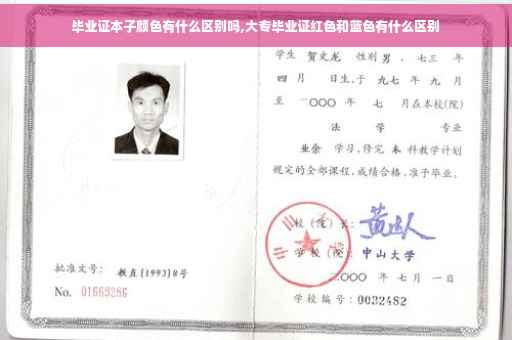 毕业证本子颜色有什么区别吗,大专毕业证红色和蓝色有什么区别
学生 贺文龙 性别 男 、七三 年
四 月 日生,于 九七 年 九 月
至 二〇〇〇 年 七 月在本校(院)
法 学 专业
业余 学习,修完 本 科教学计划
规定的全部课程,成绩合格,准予毕业。
校(院)长:
学 校(院): 中山大学
二〇〇〇 年 七 月 一 日
学校编号: 0032482
批准文号: 教直[1993]8号
No. 01669286